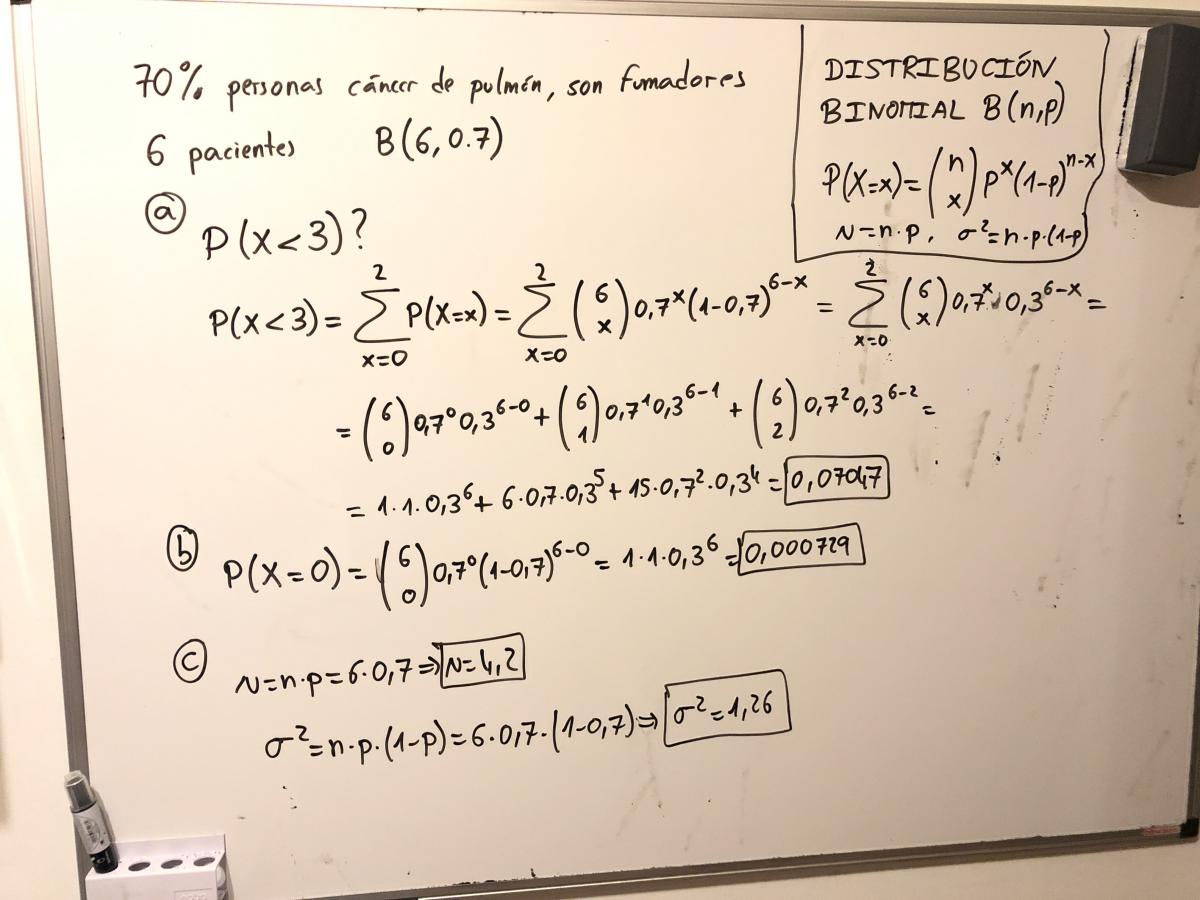 70% personas cáncer de pulmón, son fumadores
6 pacientes B(6, 0.7)
DISTRIBUCIÓN
BINOMIAL B(n,p)
P(X=x)=(n x) p^x (1-p)^{n-x}
μ=n·p, σ²=n·p·(1-p)
ⓐ P(X<3)?
P(X<3)=∑_{x=0}^{2} P(X=x)=∑_{x=0}^{2} (6 x) 0,7^x (1-0,7)^{6-x} = ∑_{x=0}^{2} (6 x) 0,7^x · 0,3^{6-x} =
= (6 0) 0,7⁰ 0,3^{6-0} + (6 1) 0,7¹ 0,3^{6-1} + (6 2) 0,7² 0,3^{6-2} =
= 1·1·0,3⁶ + 6·0,7·0,3⁵ + 15·0,7²·0,3⁴ = 0,07047
ⓑ P(X=0) = (6 0) 0,7⁰ (1-0,7)^{6-0} = 1·1·0,3⁶ = 0,000729
ⓒ μ=n·p=6·0,7 ⇒ μ=4,2
σ²=n·p·(1-p)=6·0,7·(1-0,7) ⇒ σ²=1,26